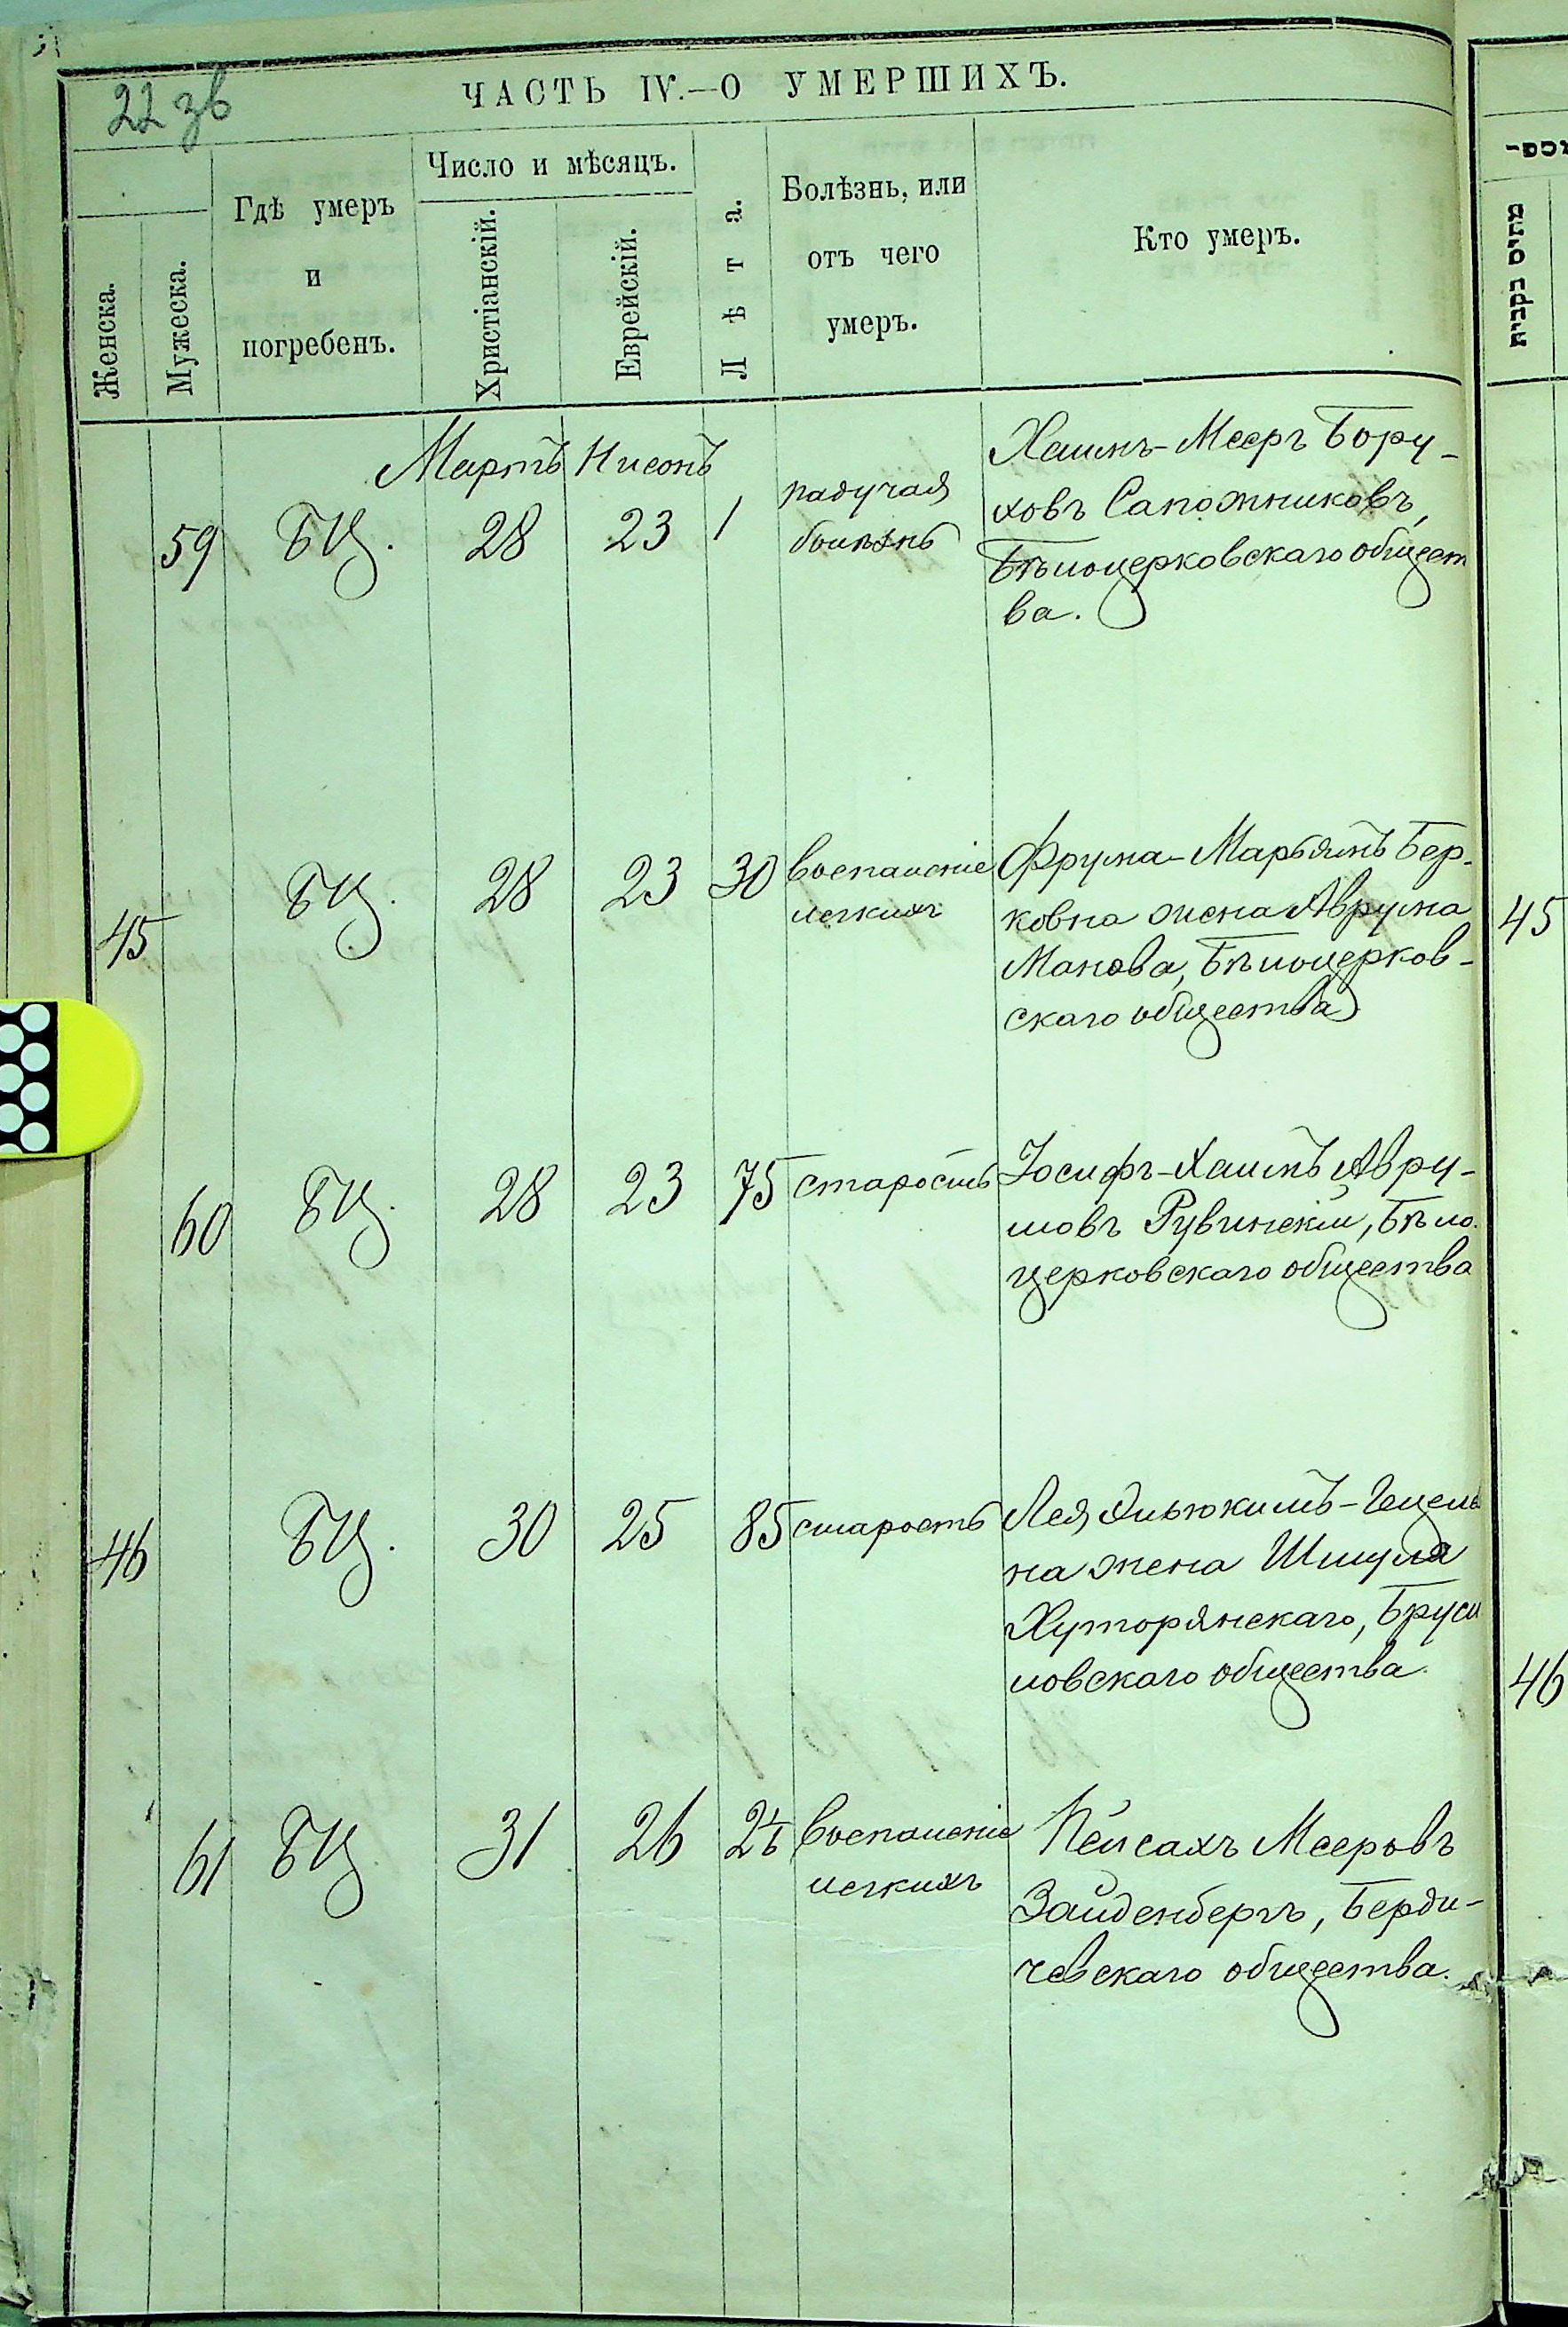 22 зв
ЧАСТЬ IV.—О УМЕРШИХЪ.
Женска.
Мужеска.
Гдѣ умеръ
и
погребенъ.
Число и мѣсяцъ.
Христіанскій.
Еврейскій.
Лѣта.
Болѣзнь, или
отъ чего
умеръ.
Кто умеръ.
Мартъ Нисонъ
59 БЦ. 28 23 1
падучая
болѣзнь
Хаимъ-Мееръ Бору-
ховъ Сапожниковъ,
Бѣлоцерковскаго общест
ва.
45 БЦ. 28 23 30
воспаленіе
легкихъ
Фрума-Марьямъ Бер-
ковна жена Аврума
Манова, Бѣлоцерков-
скаго общества
45
60 БЦ. 28 23 75 старость
Іосифъ-Хаимъ Авру-
мовъ Рувинскій, Бѣло-
церковскаго общества
46 БЦ. 30 25 85 старость
Лея
на жена Шмуля
Хуторянскаго, Бруси
ловскаго общества.
46
61 БЦ 31 26
воспаленіе
легкихъ
Пейсахъ Мееровъ
Зайденбергъ, Берди-
чевскаго общества.